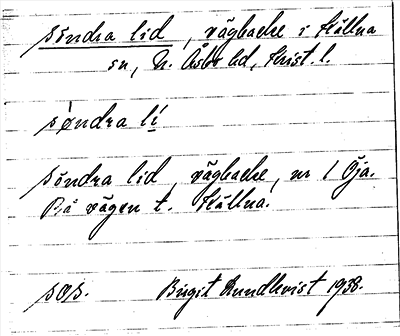 söndra lid, vägbacke i Källna
sn, N. Åsbo hd, Krist. l.
söndra lí
Söndra lid, vägbacke, nr 1 Öja.
På vägen t. Källna.
sås.    Birgit Rundkvist 1938.